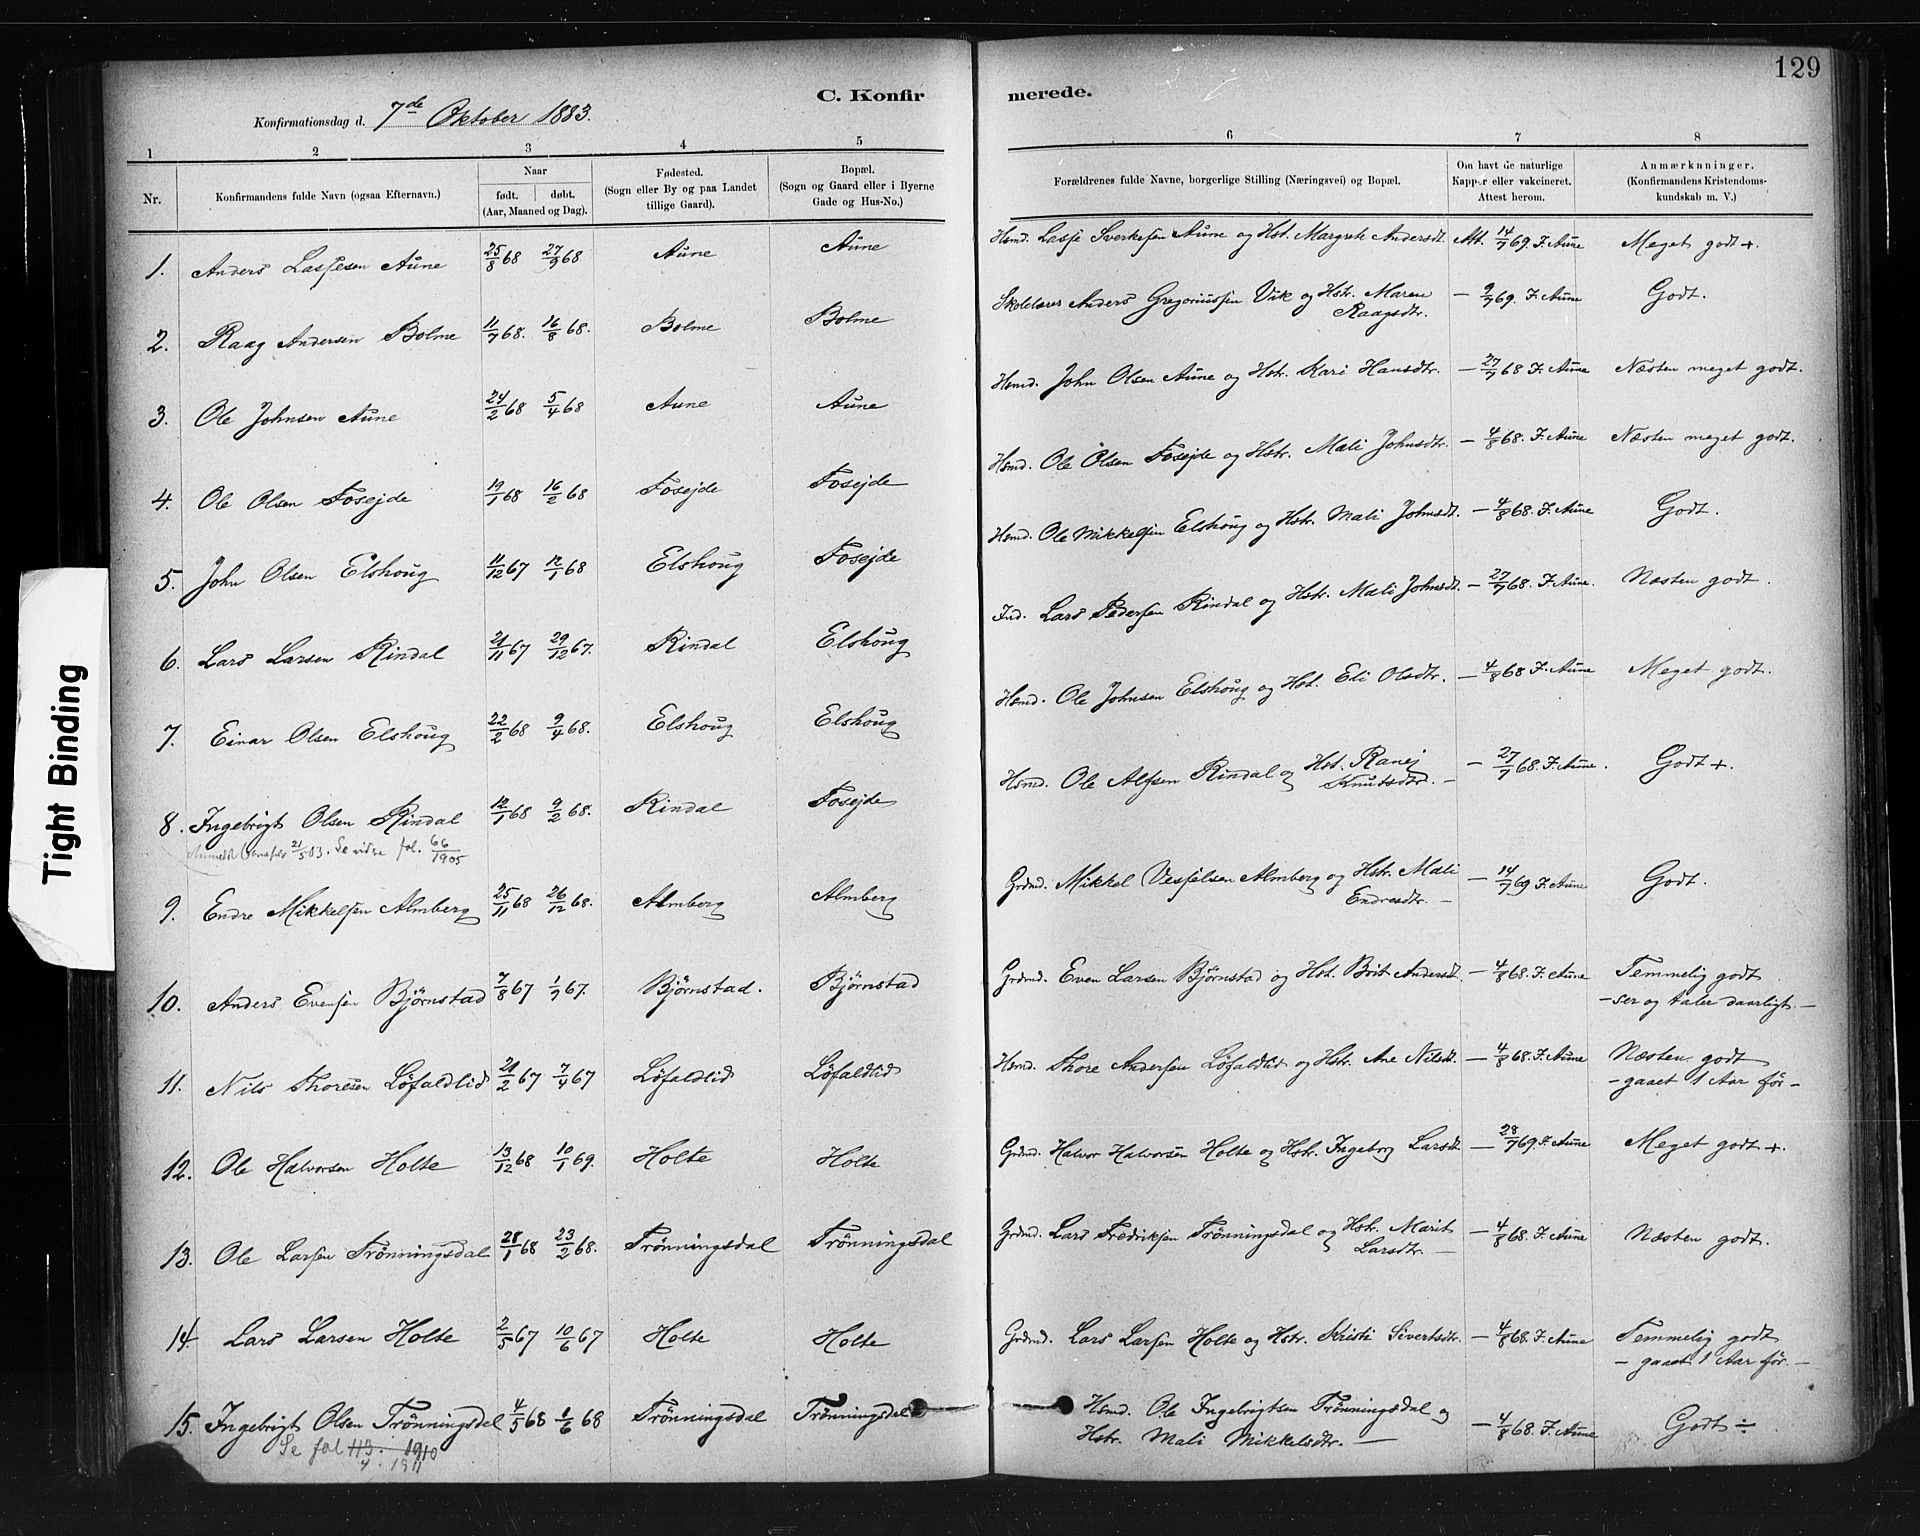 129
C. Konfir merede.
Konfirmationsdag d. 7de Oktober 1883.
1 2 3 4 5 6 7 8
Nr. Konfirmandens fulde Navn (ogsaa Efternavn.) Naar født. døbt. (Aar, Maaned og Dag). Fødested. (Sogn eller By og paa Landet tillige Gaard). Bopæl. (Sogn og Gaard eller i Byerne Gade og Hus-No.) Forældrenes fulde Navne, borgerlige Stilling (Næringsvei) og Bopæl. Om havt de naturlige Kopper eller vakcineret. Attest herom. Anmærkninger. (Konfirmandens Kristendoms-kundskab m. V.)
1. Anders Lassesen Aune 25/8 68 27/9 68 Aune Aune Hsmd. Lasse Sverkesen Aune og Hst. Margrete Andersdt. Att. 14/7 69. F. Aune Meget godt +.
2. Raag Andersen Bolme 11/7 68. 16/8 68. Bolme Bolme Skolelærer Anders Gregoriussen Vik og Hstr. Maren Raagsdtr. — 9/7 69. F. Aune Godt.
3. Ole Johnsen Aune 24/2 68 5/4 68 Aune Aune Hsmd. John Olsen Aune og Hstr. Kari Hansdtr. — 27/7 68 F. Aune Næsten meget godt.
4. Ole Olsen Fosejde 19/1 68 16/2 68 Fosejde Fosejde Hsmd. Ole Olsen Fosejde og Hstr. Mali Johnsdtr. — 4/8 68. F. Aune Næsten meget godt.
5. John Olsen Elshoug 11/12 67 12/1 68 Elshoug Fosejde Hsmd. Ole Mikkelsen Elshoug og Hstr. Mali Johnsdt. — 4/8 68. F. Aune Godt.
6. Lars Larsen Rindal 21/11 67 29/12 67. Rindal Elshoug Ind. Lars Pedersen Rindal og Hstr. Mali Johnsdt. — 27/7 68. F. Aune. Næsten godt.
7. Einar Olsen Elshoug 22/2 68 9/4 68. Elshoug Elshoug Hsmd. Ole Johnsen Elshoug og Hst. Eli Olsdtr. — 4/8 68 F. Aune Meget godt.
8. Ingebrigt Olsen Rindal 12/1 68 9/2 68. Rindal Fosejde Hsmd. Ole Alfsen Rindal og Hst. Ranej Knutsdtr. — — 27/7 68. F. Aune. Godt +.
21/5 03. Se vidre fol. 66/1905
9. Endre Mikkelsen Almberg 25/11 68 26/12 68. Almberg Almberg Grdmd. Mikkel Vesselsen Almberg og Hstr. Mali Endresdtr. — — 14/7 69 F. Aune Godt.
10. Anders Evensen Bjørnstad 7/8 67 1/9 67. Bjørnstad. Bjørnstad Grdmd. Even Larsen Bjørnstad og Hst. Brit Andersdt. — 4/8 68. F. Aune Temmelig godt
— ser og taler daarligt. —
11. Nils Thoresen Løfaldlid 21/2 67 7/4 67 Løfaldlid Løfaldlid Hsmd. Thore Andersen Løfaldlid og Hstr. Ane Nilsdt. — 4/8 68. F. Aune Næsten godt
— gaaet 1 Aar før —
12. Ole Halvorsen Holte 13/12 68 10/1 69. Holte Holte Grdmd. Halvor Halvorsen Holte og Hstr. Ingeborg Larsdt. — 28/7 69. F. Aune Meget godt +.
13. Ole Larsen Trønningsdal 21/1 68 23/2 68. Trønningsdal Trønningsdal Grdmd. Lars Fredriksen Trønningsdal og Hstr. Marit Larsdtr. — — 4/8 68. F. Aune Næsten godt.
14. Lars Larsen Holte 2/5 67 10/6 67 Holte Holte Grdmd. Lars Larsen Holte og Hstr. Kristi Sivertsdtr. — 4/8 68. F. Aune Temmelig godt
— gaaet 1 Aar før. —
15. Ingebrigt Olsen Trønningsdal 4/5 68 1/6 68 Trønningsdal Trønningsdal Hsmd. Ole Ingebrigtsen Trønningsdal og Hstr. Mali Mikkelsdtr. — — 4/8 68. F. Aune Godt ÷
Se fol 113. 1910
4. 1911
Tight Binding